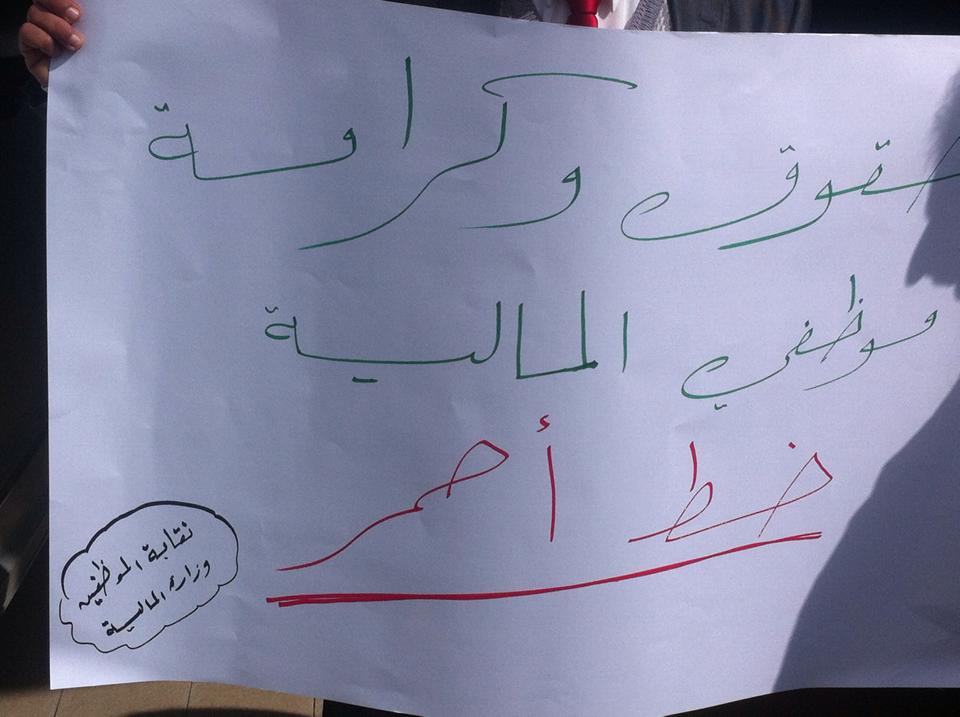 حقوق وكرامة
موظفي المالية
خط أحمر
نقابة الموظفين
وزارة المالية